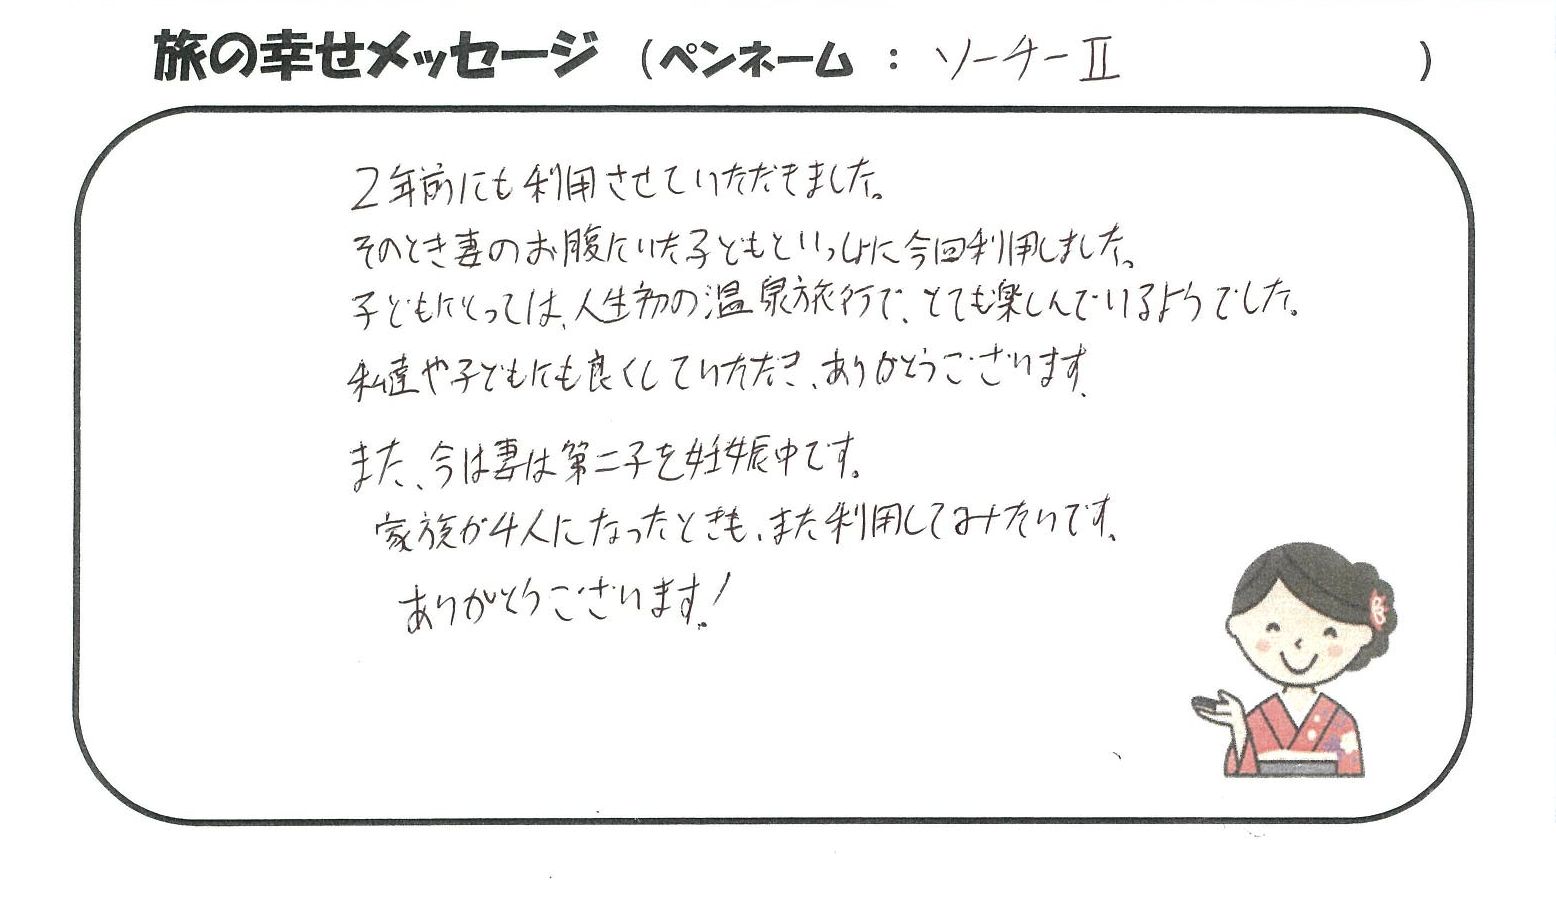 旅の幸せメッセージ (ペンネーム : ソーナーⅡ )
2年前にも利用させていただきました。
そのとき妻のお腹にいた子どもといっしょに今回利用しました。
子どもにとっては、人生初の温泉旅行で、とても楽しんでいるようでした。
私達や子どもにも良くしていただき、ありがとうございます。
また、今は妻は第二子を妊娠中です。
家族が4人になったときも、また利用してみたいです。
ありがとうございます!